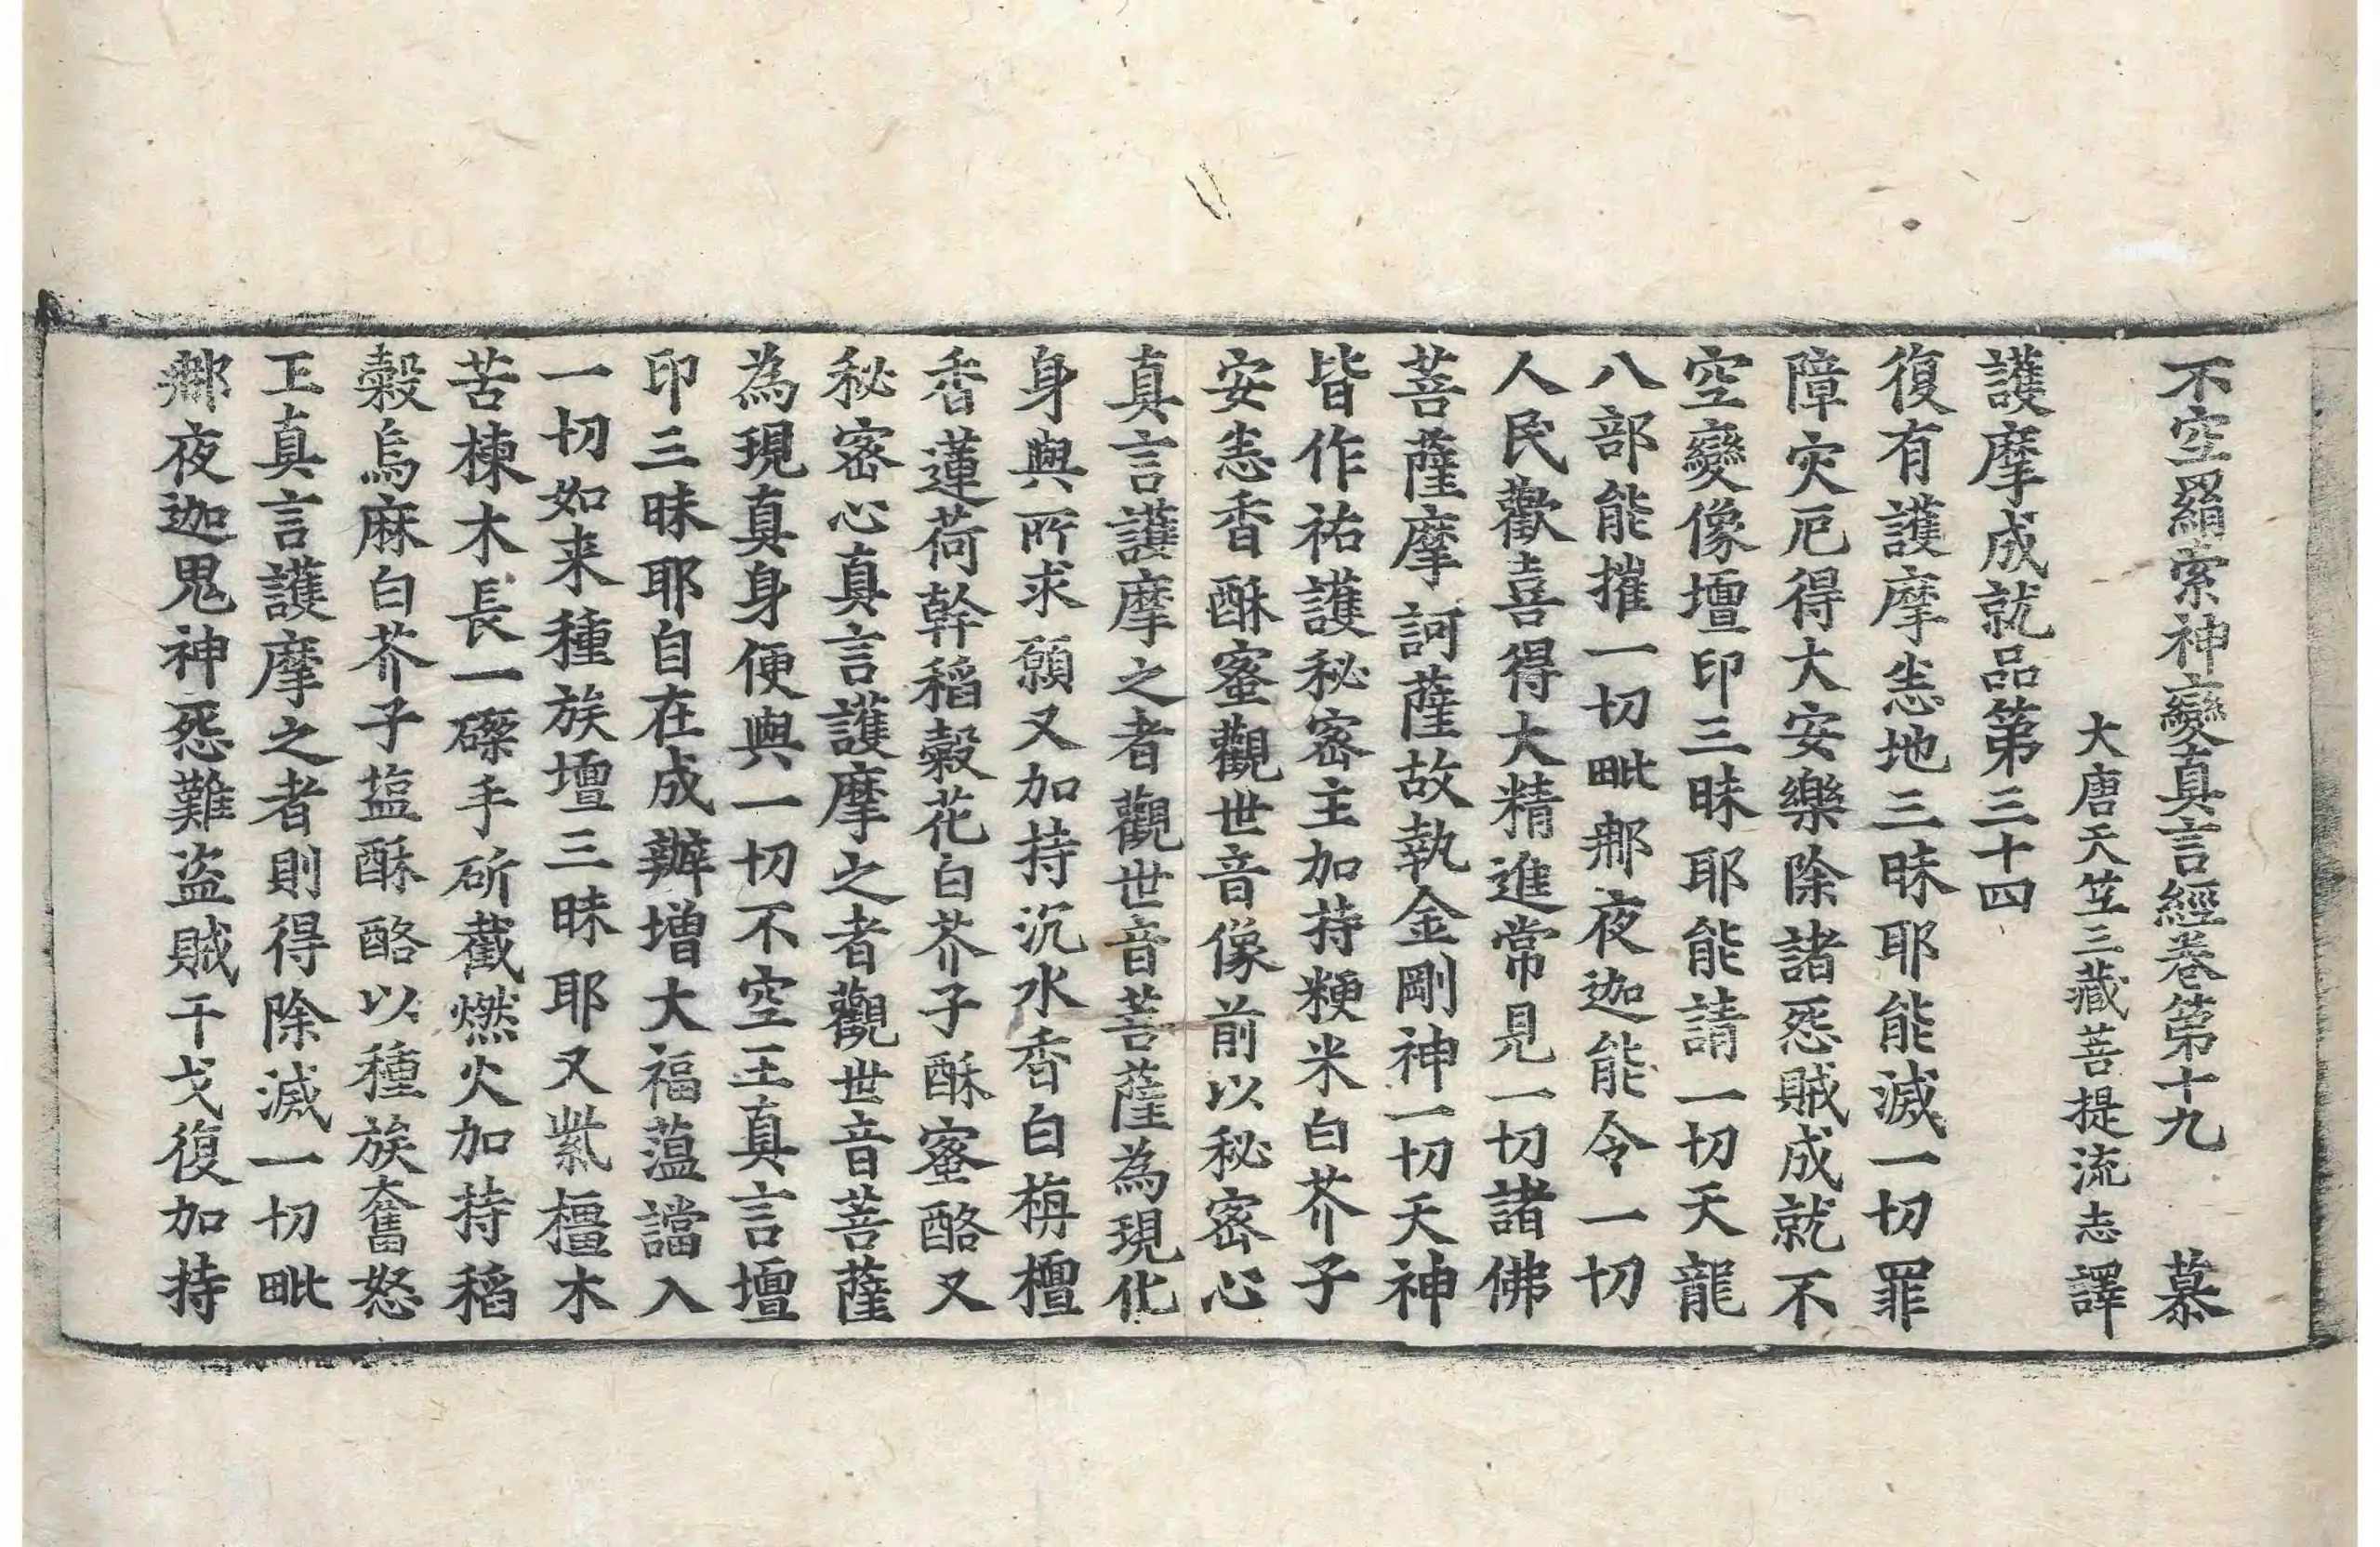 不空羂索神變真言經卷第十九　慕
大唐天竺三藏菩提流志譯
護摩成就品第三十四
復有護摩悉地三昧耶能滅一切罪
障灾厄得大安樂除諸怨賊成就不
空變像壇印三昧耶能請一切天龍
八部能摧一切毗那夜迦能令一切
人民歡喜得大精進常見一切諸佛
菩薩摩訶薩故執金剛神一切天神
皆作祐護秘密主加持粳米白芥子
安悉香酥蜜觀世音像前以秘密心
真言護摩之者觀世音菩薩為現化
身與所求願又加持沉水香白栴檀
香蓮荷幹稻穀花白芥子酥蜜酪又
秘密心真言護摩之者觀世音菩薩
為現真身便與一切不空王真言壇
印三昧耶自在成辦增大福蘊讜入
一切如来種族壇三昧耶又紫橿木
苦楝木長一磔手斫截燃火加持稻
穀烏麻白芥子塩酥酪以種族奮怒
王真言護摩之者則得除滅一切毗
那夜迦鬼神怨難盜賊干戈復加持